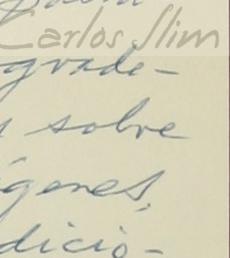 Carlos Slim
grade-
sobre
genes,
dicio-